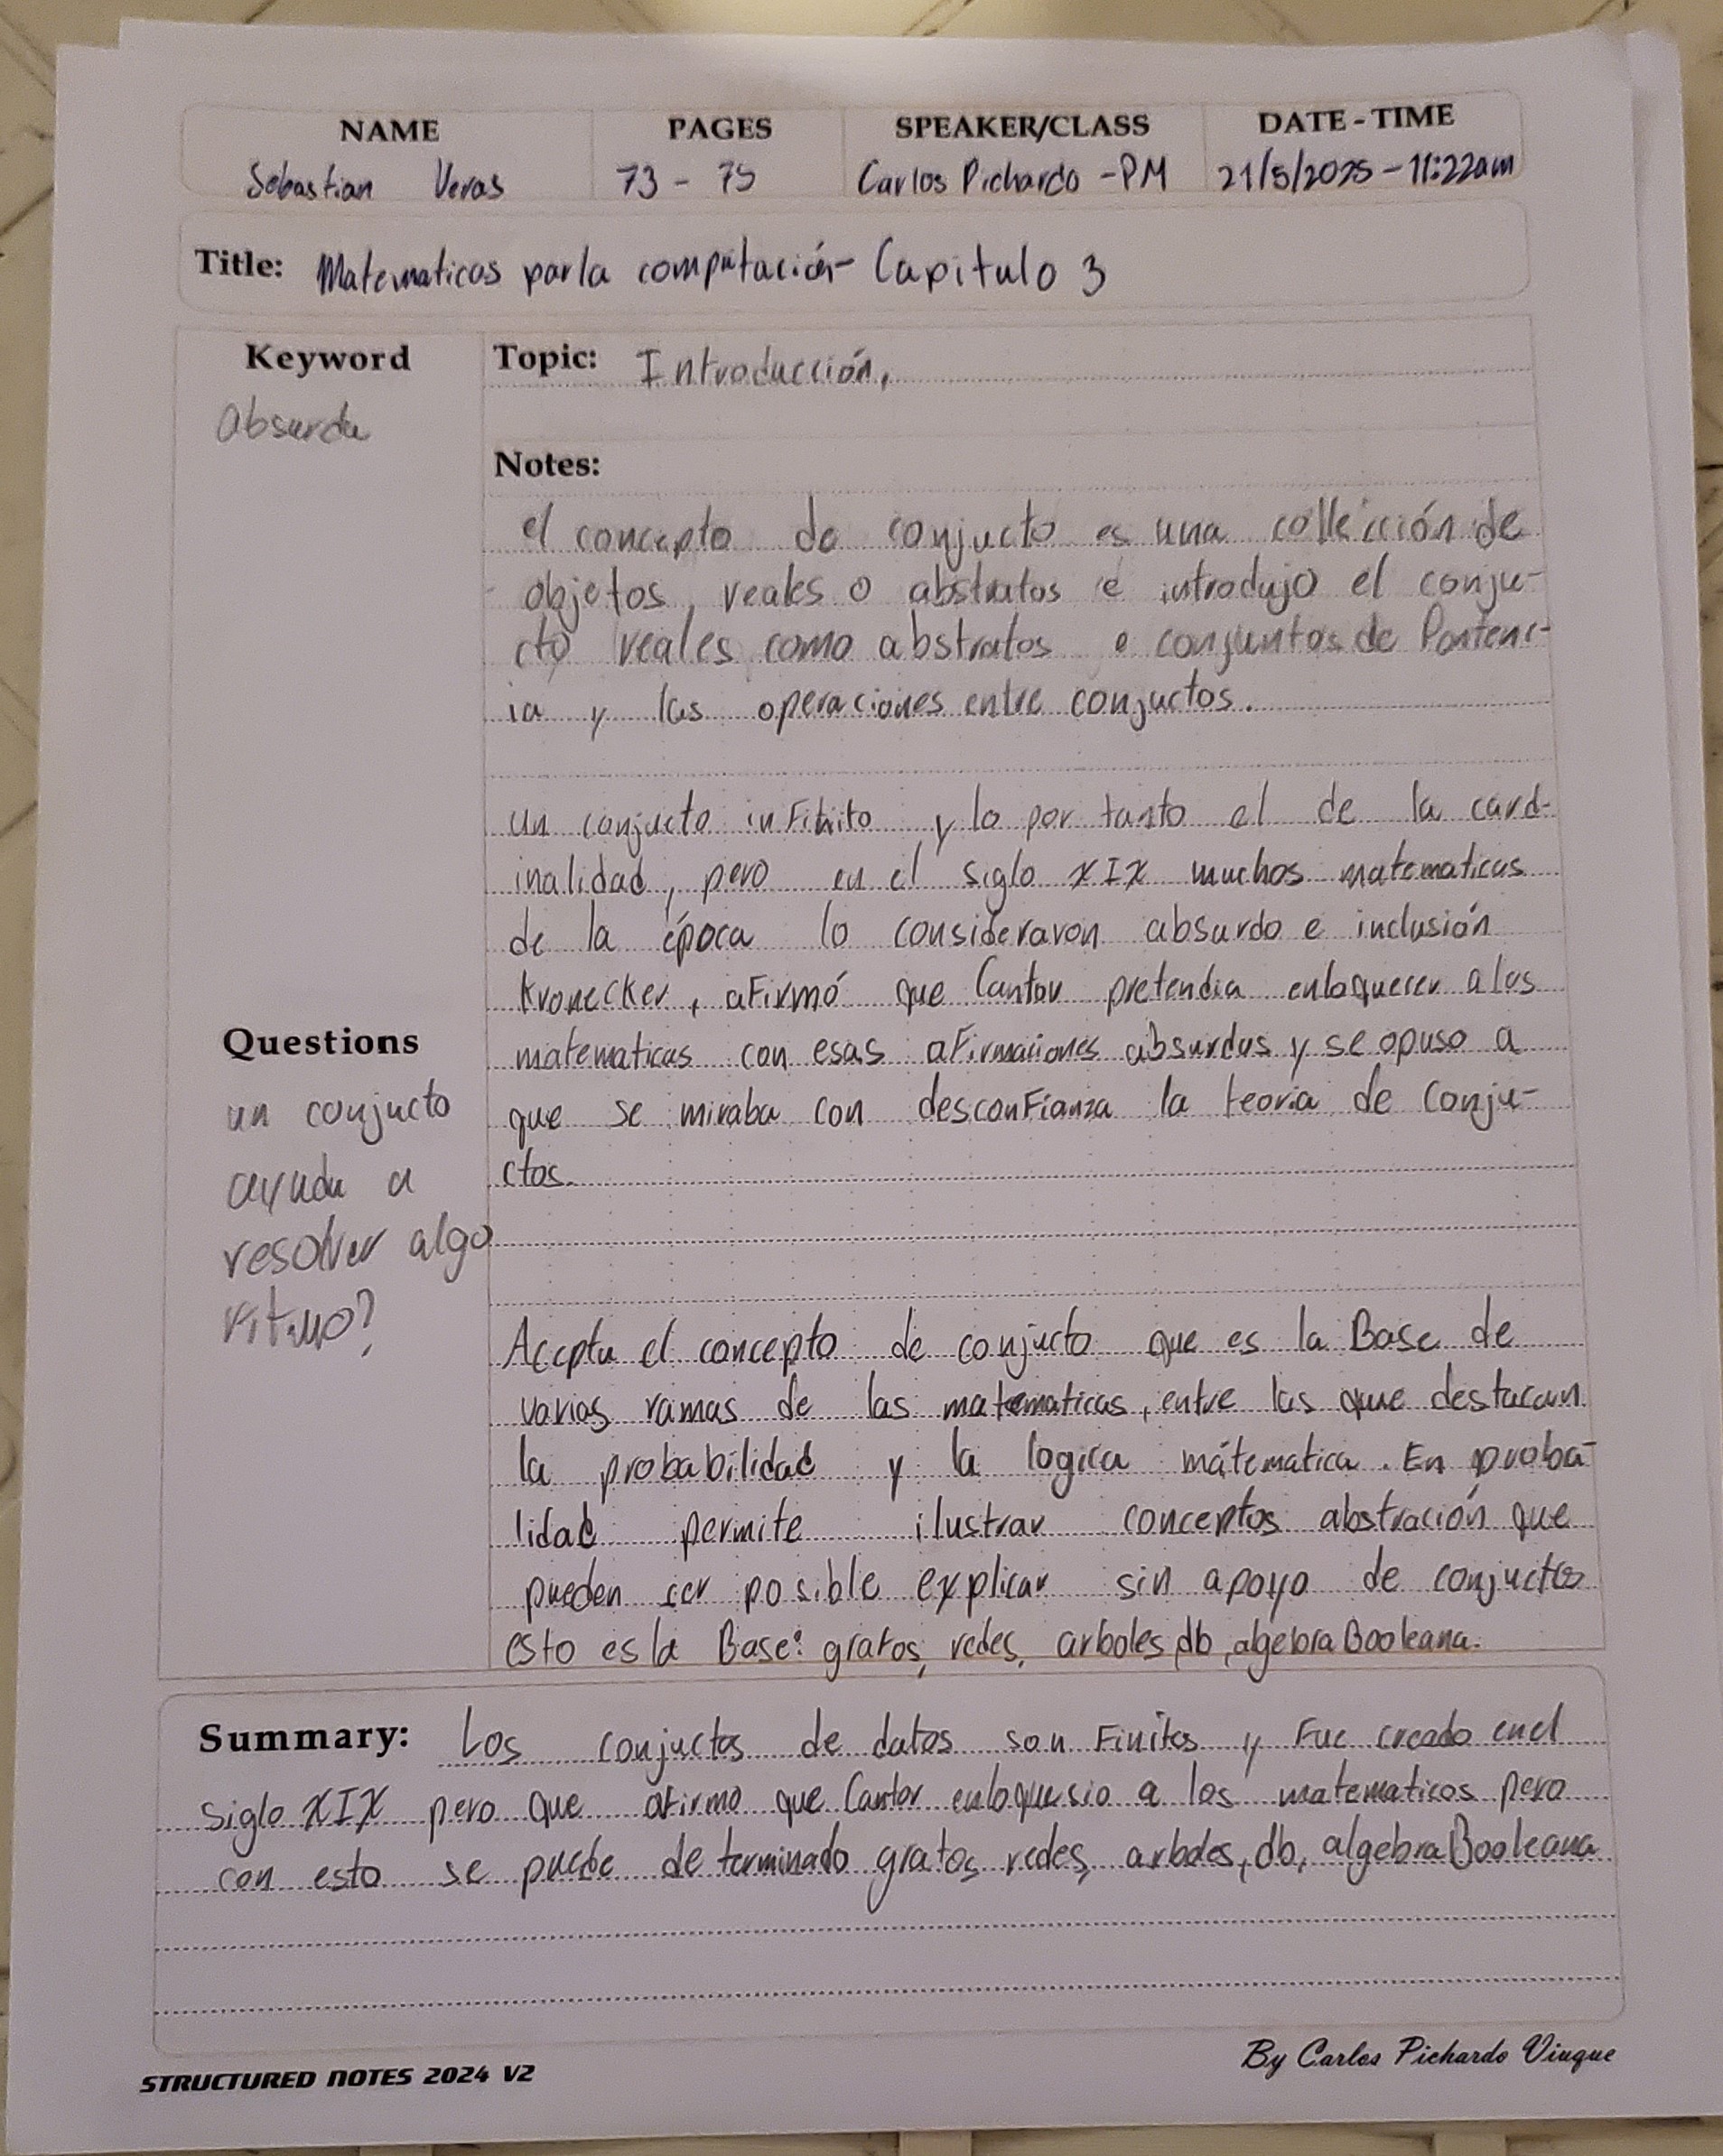 NAME PAGES SPEAKER/CLASS DATE - TIME
Sebastian Veras 73 - 75 Carlos Pichardo - PM 21/5/2025 - 11:22am
Title: Matematicas para la computación - Capitulo 3
Keyword
Absurda
Topic: Introducción,
Notes:
el concepto de conjucto es una collección de
objetos, reales o abstratos e introdujo el conju-
cto reales como abstratos e conjuntos de Pontenc-
ia y las operaciones entre conjuctos.
un conjucto infinito y lo por tanto el de la card-
inalidad, pero en el siglo XIX muchos matematicas
de la época lo consideraron absurdo e inclusión
Kronecker, afirmó que Cantor pretendia enloquecer a los
matematicas con esas afirmaciones absurdas y se opuso a
que se miraba con desconfianza la teoria de conju-
ctos.
Acepta el concepto de conjucto que es la Base de
varias ramas de las matematicas, entre las que destacan
la probabilidad y la logica mátematica. En proba-
lidad permite ilustrar conceptos abstración que
pueden ser posible explicar sin apoyo de conjuctos
esto es la Base: grafos, redes, arboles, db, algebra Booleana.
Questions
un conjucto
ayuda a
resolver algo
ritmo?
Summary: Los conjuctos de datos son Finitos y Fue creado en el
siglo XIX pero que afirmo que Cantor enloquesio a los matematicos pero
con esto se puede determinado grafos, redes, arboles, db, algebra Booleana
STRUCTURED NOTES 2024 V2
By Carlos Pichardo Viuque